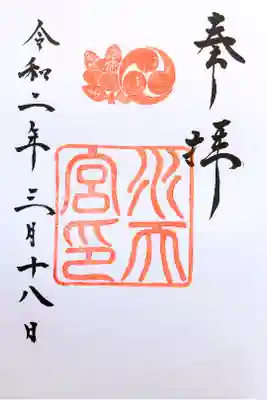 奉拝
水天
宮印
令和二年三月十八日